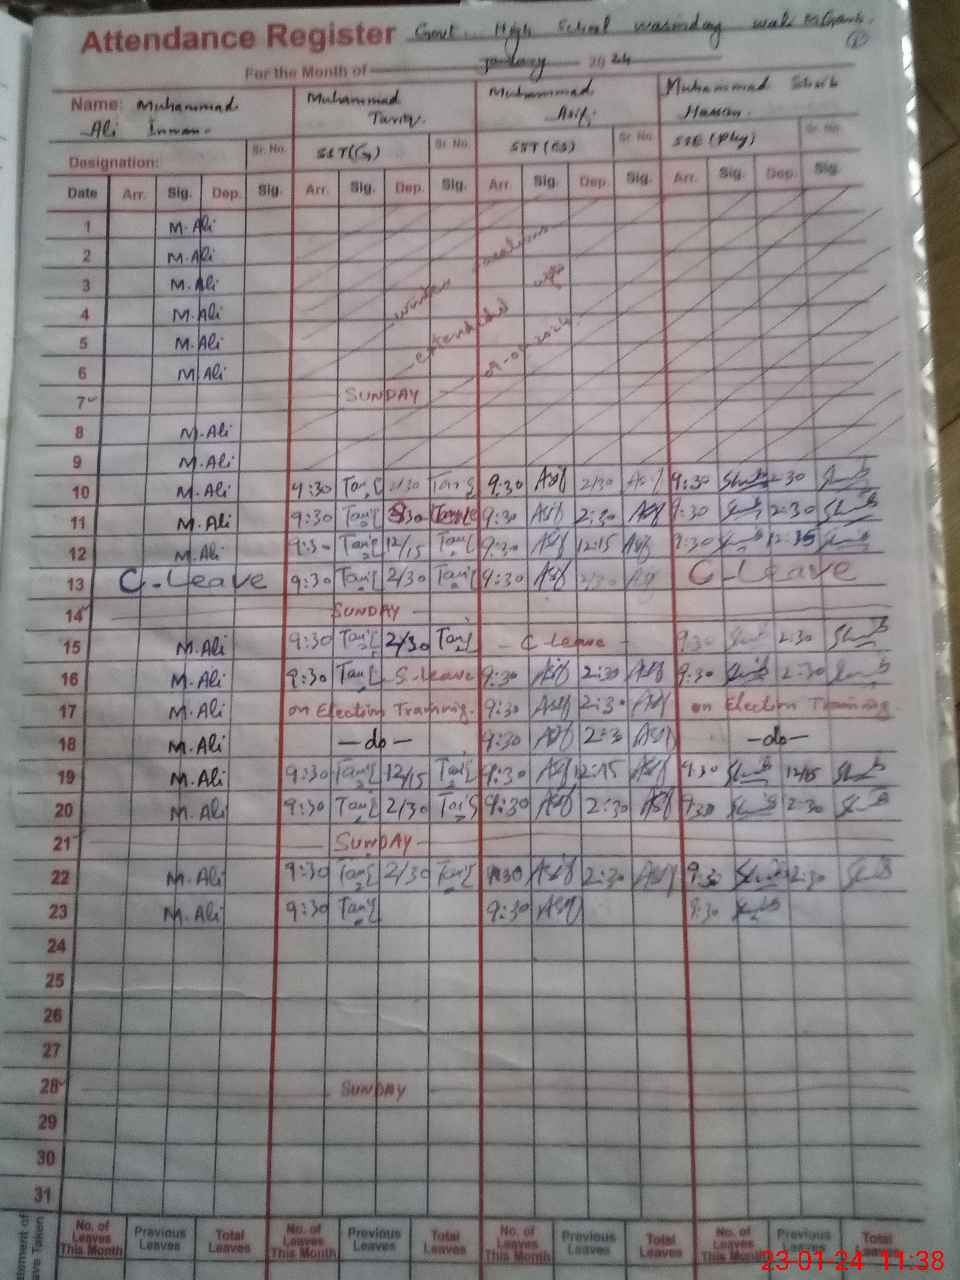 Attendance Register Govt. High School wali
For the Month of January 2024
Name: Muhammad Ali Muhammad Tariq. Muhammad Asif. Muhammad
Sr. No. SST(G) Sr. No. SST(CS) Sr. No. SSE(Phy) Sr. No.
Designation:
Date Arr. Sig. Dep. Sig. Arr. Sig. Dep. Sig. Arr. Sig. Dep. Sig. Arr. Sig. Dep. Sig.
1 M.Ali
2 M.Ali
3 M.Ali
4 M.Ali
5 M.Ali
6 M.Ali
winter vacation
extended upto
09-01-2024
7 SUNDAY
8 M.Ali
9 M.Ali
10 M.Ali 9:30 Tariq 2/30 Tariq 9:30 Asif 2/30 Asif 9:30 2:30
11 M.Ali 9:30 Tariq 9:30 Asif 2:30 Asif 9:30 2:30
12 M.Ali 9:30 Tariq 12/15 Tariq 9:30 Asif 12:15 Asif 9:30
13 C-Leave 9:30 Tariq 2/30 Tariq 9:30 Asif 2/30 Asif C-Leave
14 SUNDAY
15 M.Ali 9:30 Tariq 2/30 Tariq - C leave - 9:30 2:30
16 M.Ali 9:30 Tariq S.leave 9:30 Asif 2:30 Asif 9:30 2:30
17 M.Ali on Election Training. 9:30 Asif 2:30 Asif on Election Training
18 M.Ali —do— 9:30 Asif 2:3 Asif —do—
19 M.Ali 9:30 Tariq 12/15 Tariq 9:30 Asif 12:15 Asif 9:30 12/15
20 M.Ali 9:30 Tariq 2/30 Tariq 9:30 Asif 2:30 Asif 9:30 2:30
21 SUNDAY
22 M.Ali 9:30 Tariq 2/30 Tariq 9:30 Asif 2:30 Asif 9:30 2:30
23 M.Ali 9:30 Tariq 9:30 Asif 9:30
24
25
26
27
28 SUNDAY
29
30
31
No. of Leaves This Month Previous Leaves Total Leaves No. of Leaves This Month Previous Leaves Total Leaves No. of Leaves This Month Previous Leaves Total Leaves No. of Leaves This Month Previous Leaves Total Leaves
23-01-24 11:38